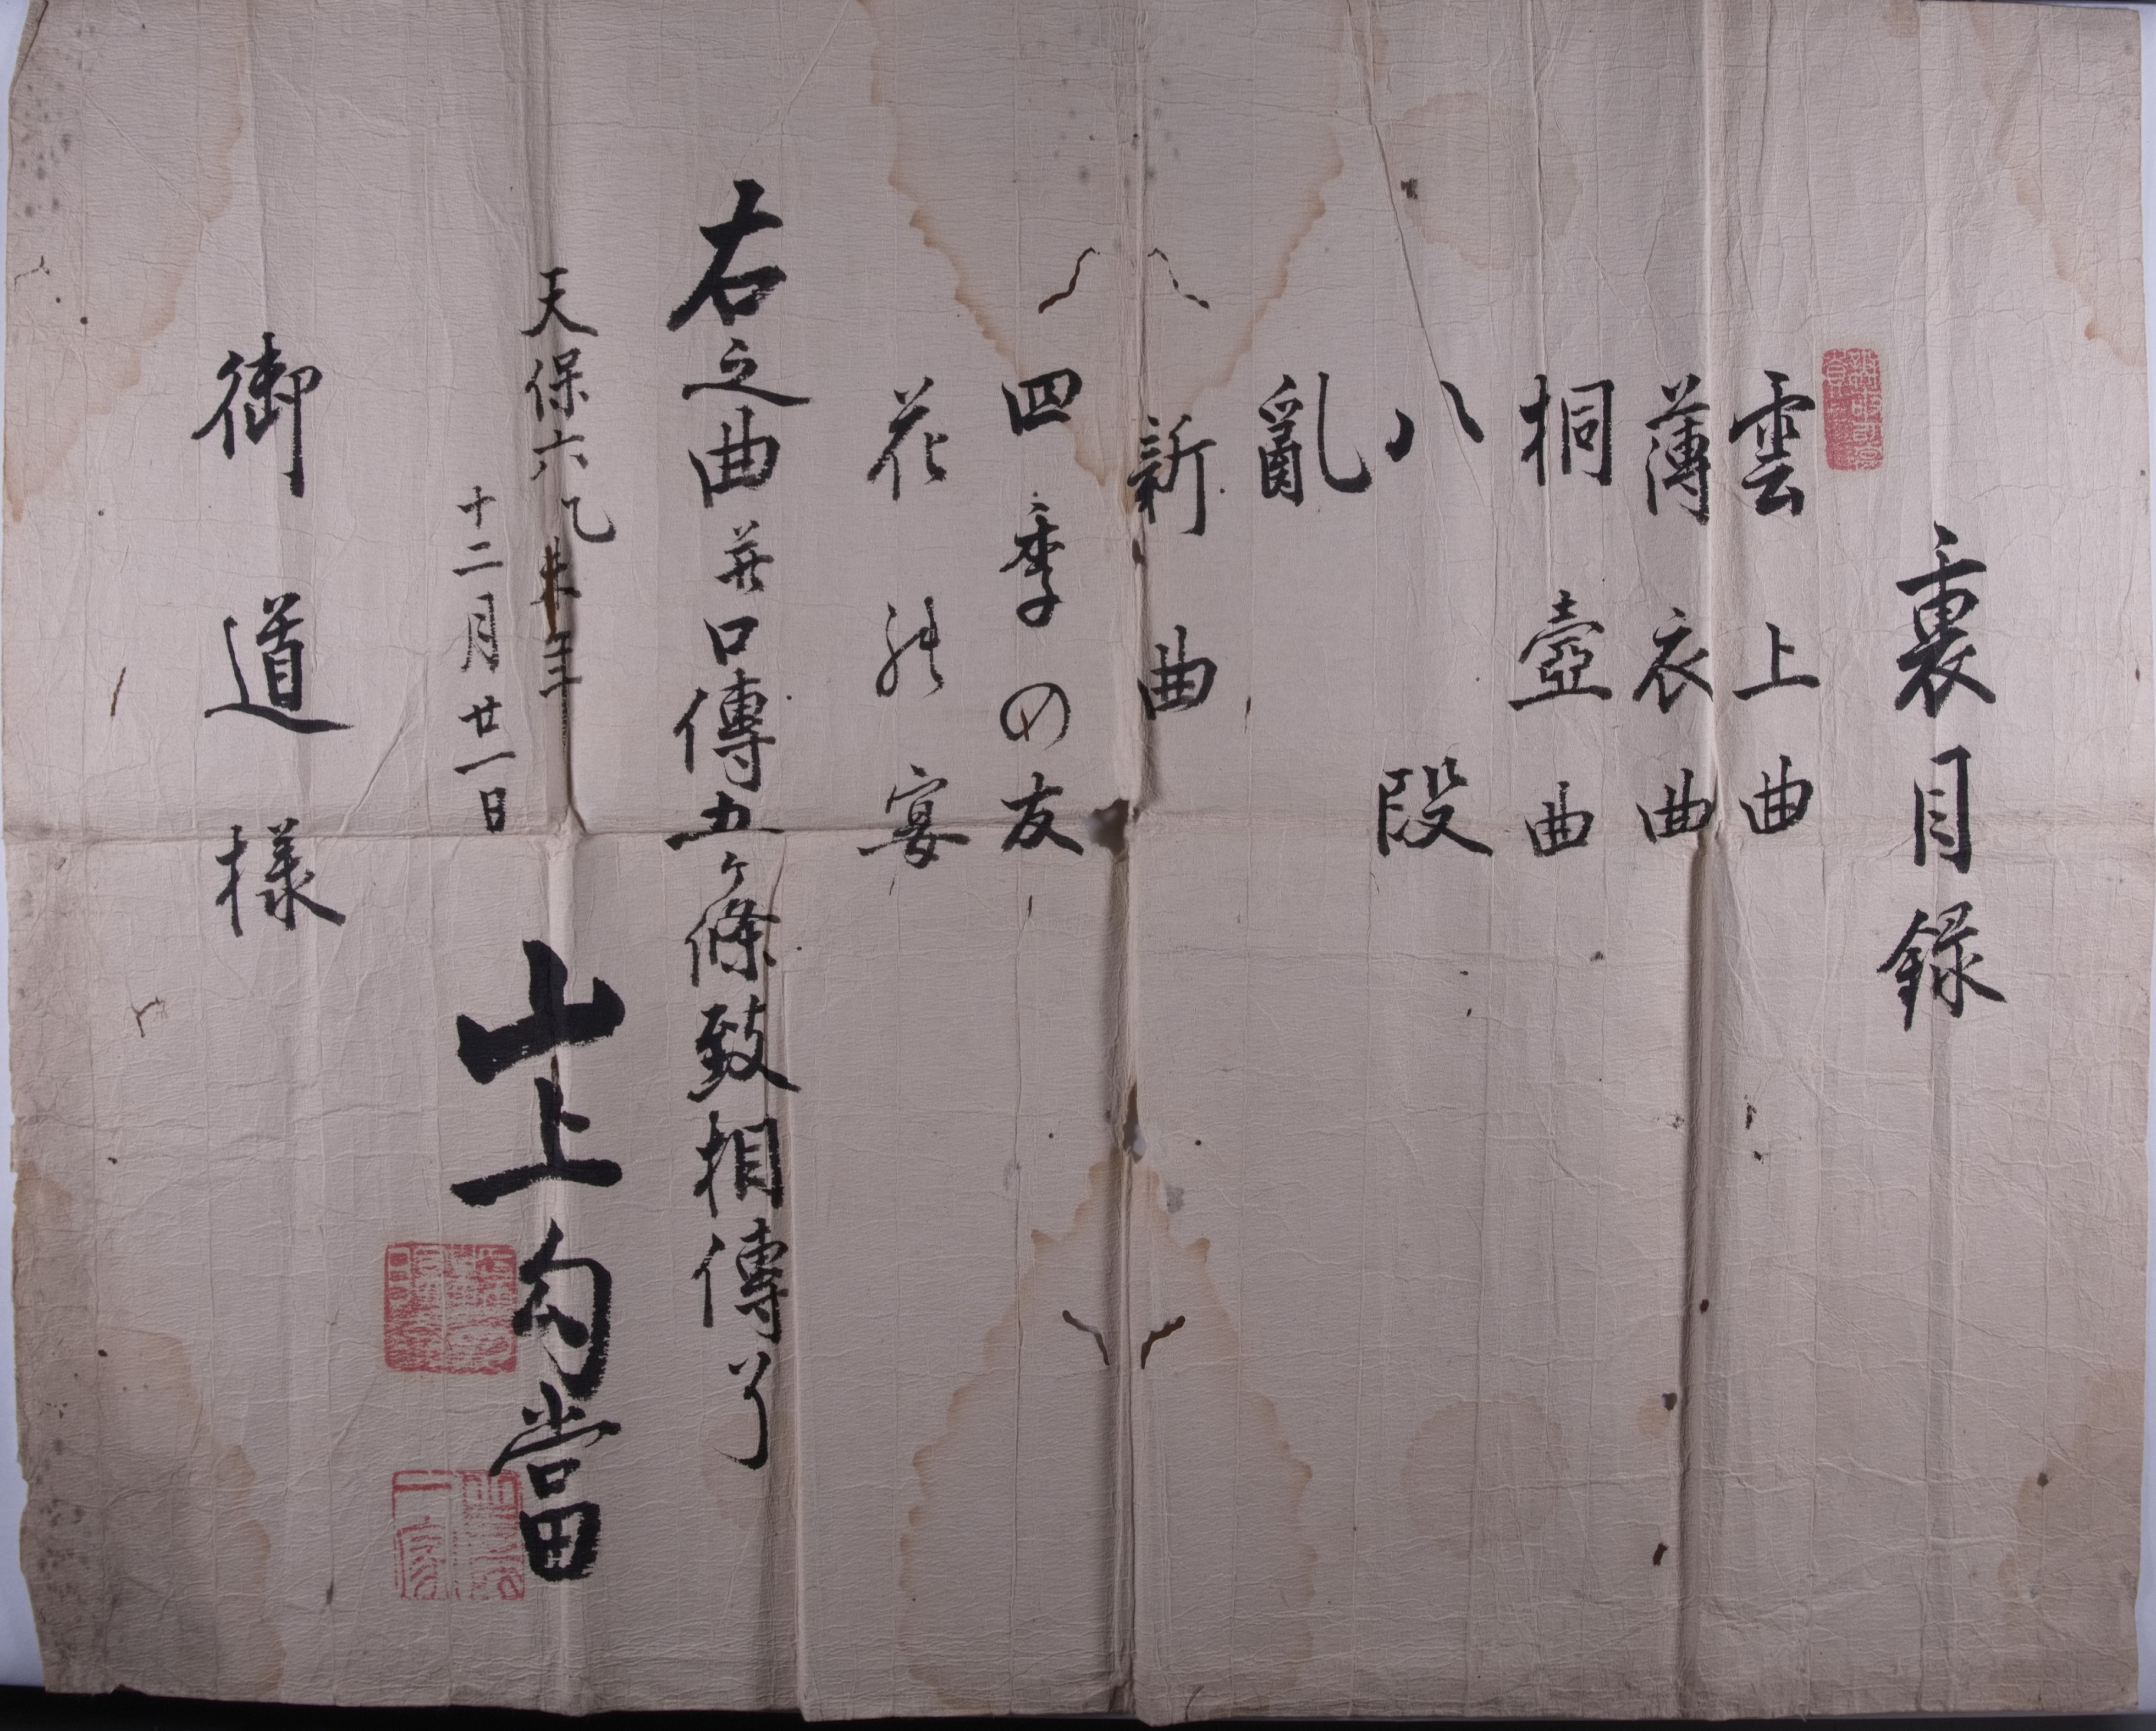 裏目録
雲上曲
薄衣曲
桐壺曲
八段
亂
新曲
四季の友
花の宴
右之曲并口傳五ヶ條致相傳了
天保六乙未年
十二月廿一日
山上勾當
御道様